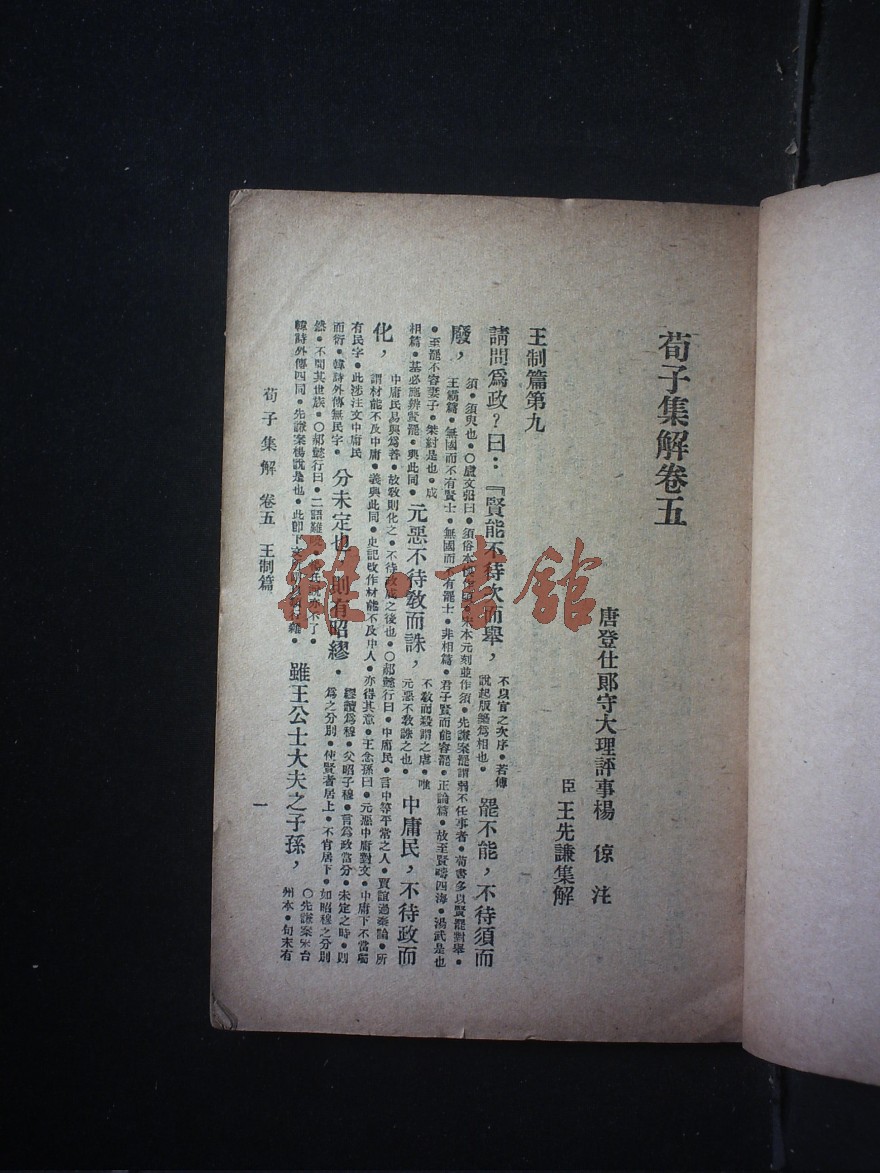 荀子集解卷五
唐登仕郎守大理評事楊 倞 注
臣 王先謙集解
王制篇第九
請問爲政？曰：『賢能不待次而舉，不以官之次序·若傅說起版築爲相也· 罷不能，不待須而
廢，須·須臾也·○盧文弨曰·須俗本·宋本元刻並作須·先謙案罷謂弱不任事者·荀書多以賢罷對舉·
王霸篇·無國而不有賢士·無國而不有罷士·非相篇·君子賢而能容罷·正論篇·故至賢疇四海·湯武是也
·至罷不容妻子·桀紂是也·成相篇·基必施辨賢罷·與此同· 元惡不待教而誅，不教而殺謂之虐·唯元惡不教誅之也· 中庸民，不待政而
化，中庸民易與爲善·故教則化之·不待政成之後也·○郝懿行曰·中庸民·言中等平常之人·賈誼過秦論·所
謂材能不及中庸·義與此同·史記改作材能不及中人·亦得其意·王念孫曰·元惡中庸對文·中庸下不當獨
有民字·此涉注文中庸民而衍·韓詩外傳無民字· 分未定也，則有昭繆·繆讀爲穆·父昭子穆·言爲政當分未定之時·則爲之分別·使賢者居上·不肖居下·如昭穆之分別
然·不問其世族·○郝懿行曰·二語難
韓詩外傳四同·先謙案楊說是也·此卽下文 雖王公士大夫之子孫，○先謙案宋台州本·句末有
荀子集解 卷五 王制篇
一
雜·書館